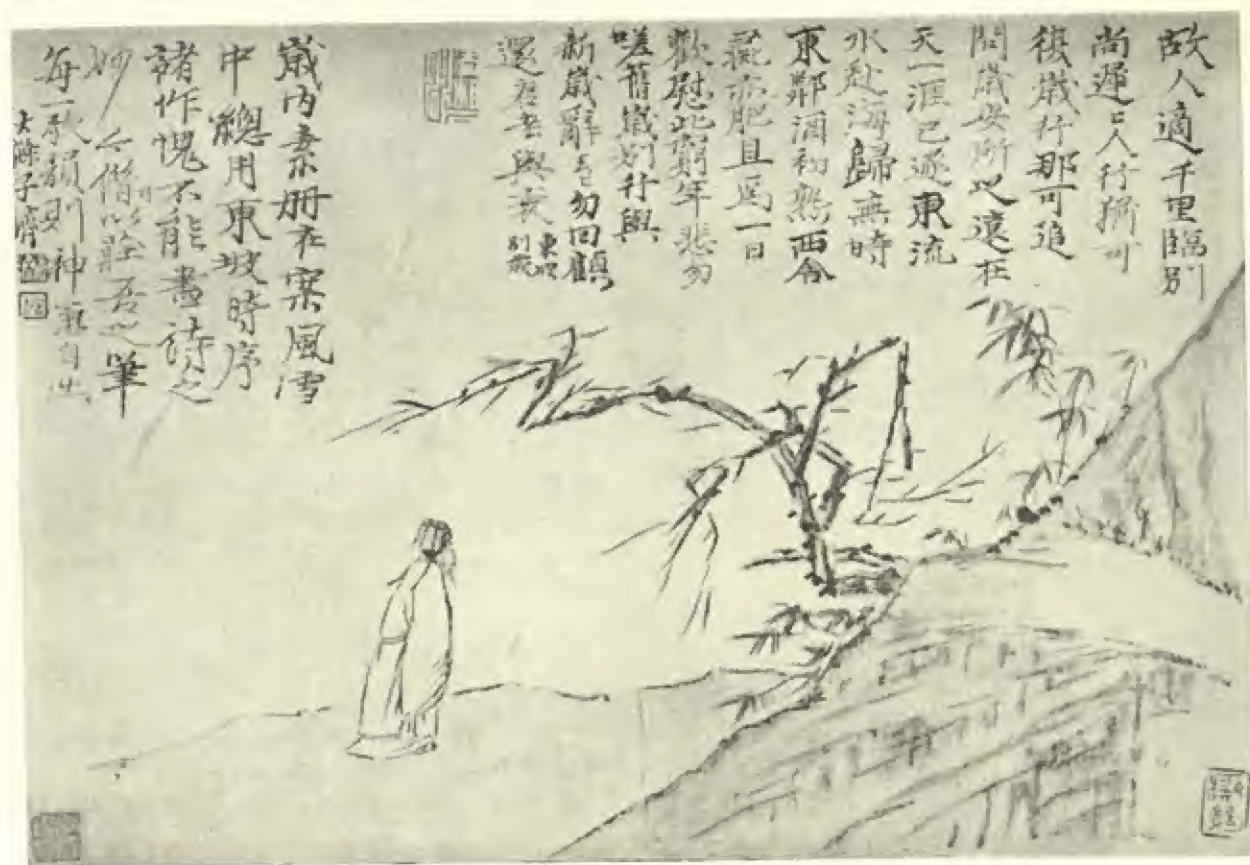 故人適千里臨別
尚遲〻人行猶可
復歲行那可追
問歲安所之遠在
天一涯已逐東流
水赴海歸無時
東鄰酒初熟西舍
彘亦肥且爲一日
歡慰此窮年悲勿
嗟舊歲別行與
新歲辭去勿回顧
還君老與衰
東坡
別歲
歲內素册在案風雪
中總用東坡時序
諸作愧不能盡詩之
妙今僭以吾之筆
每一歌頌則神氣自出
大滌子濟